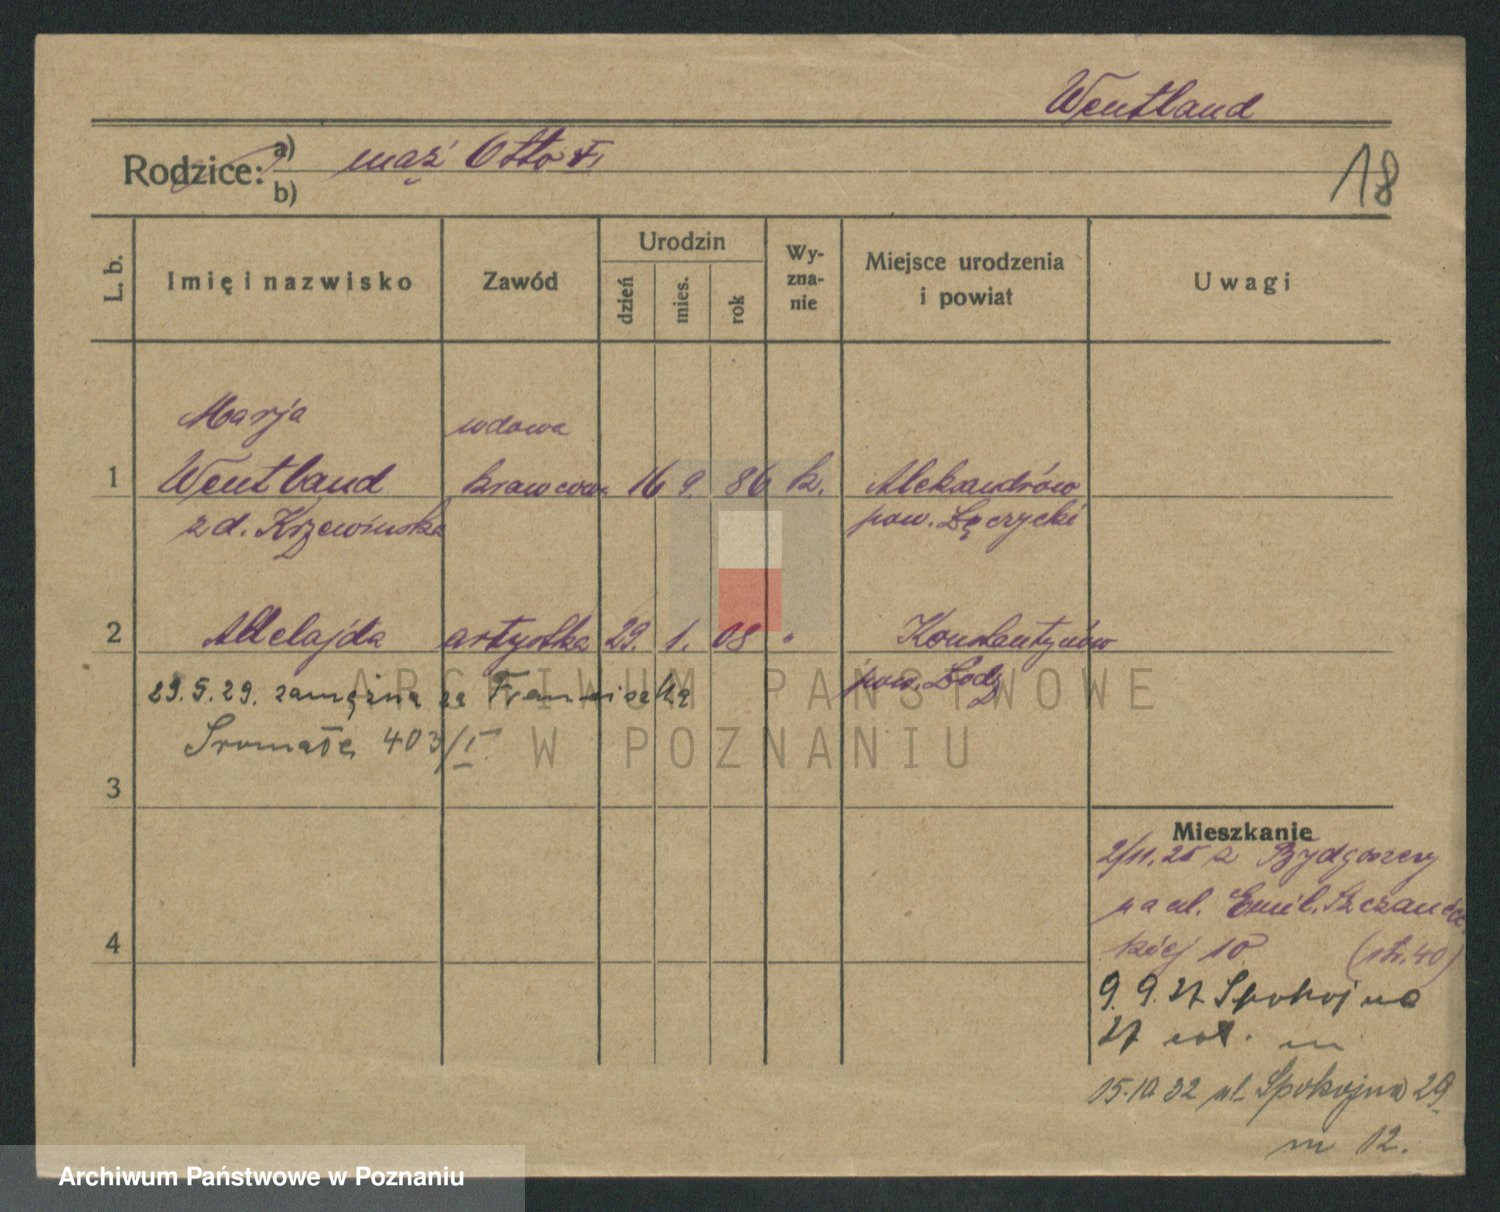 Wentland
Rodzice: a) mąż Otto †
b)
18
L. b.
Imię i nazwisko
Zawód
Urodzin
dzień
mies.
rok
Wy-
zna-
nie
Miejsce urodzenia
i powiat
Uwagi
Marja wdowa
1 Wentland krawcowa 16 9. 86 k. Aleksandrów
z d. Krzewińska pow. Łęczycki
2 Adelajda artystka 29. 1. 08 " Konstantynów
29.5.29. zamężna za Franciszka pow. Łodz
Sromałę 403/I
3
4
Mieszkanie
2/11. 25 z Bydgoszczy
na ul. Emil. Szczanec
kiej 10 (str. 40)
9. 9. 27 Spokojna
27 m
15.10 32 ul. Spokojna 29
m 12.
ARCHIWUM PAŃSTWOWE
W POZNANIU
Archiwum Państwowe w Poznaniu